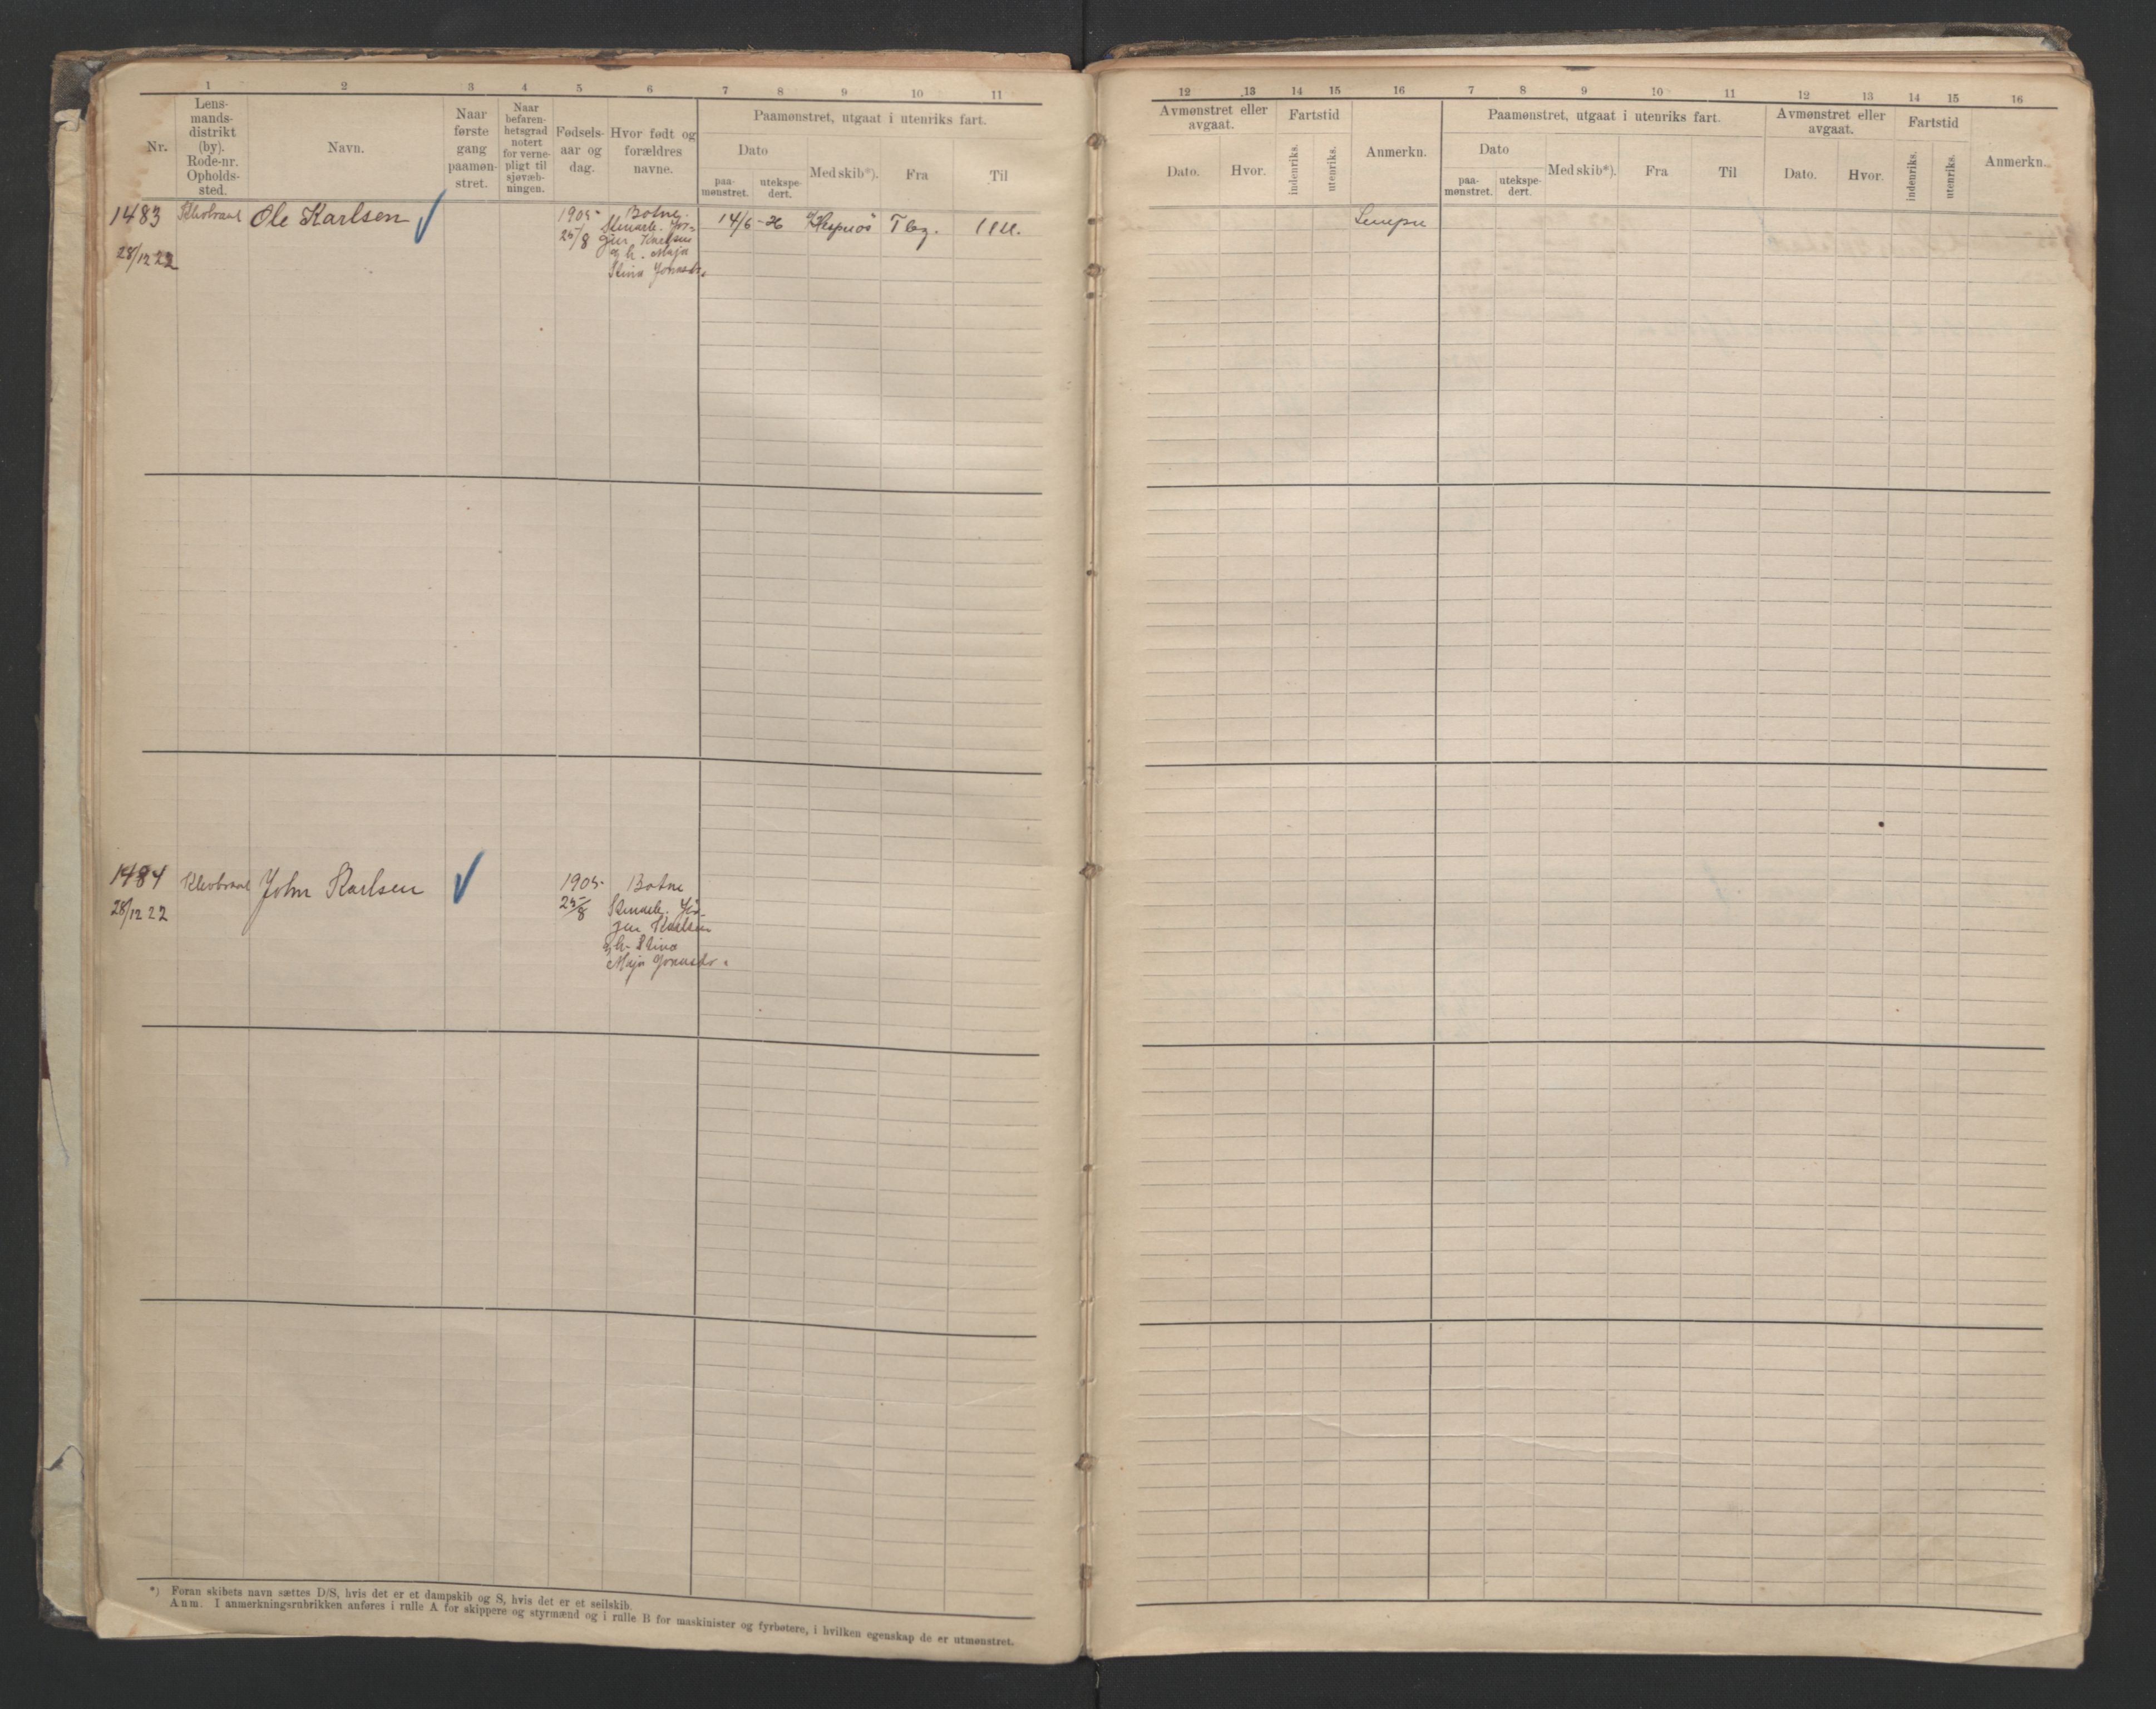 1 2 3 4 5 6 7 8 9 10 11
Nr.
Lens-
mands-
distrikt
(by).
Rode-nr.
Opholds-
sted.
Navn.
Naar
første
gang
paamøn-
stret.
Naar
befaren-
hetsgrad
notert
for verne-
pligt til
sjøvæb-
ningen.
Fødsels-
aar og
dag.
Hvor født og
forældres
navne.
Paamønstret, utgaat i utenriks fart.
Dato
paa-
mønstret.
utekspe-
dert.
Med skib*).
Fra
Til
1483 Ole Karlsen 1905 Botne. 14/6 - 26 Tbg.
25/8
28/12 22
og h. Maja
Stina
1484 John Karlsen 1905 Botne
28/12 22 25/8
Karlsen
og h. Stina
Maja
*) Foran skibets navn sættes D/S, hvis det er et dampskib og S, hvis det er et seilskib.
Anm. I anmerkningsrubrikken anføres i rulle A for skippere og styrmænd og i rulle B for maskinister og fyrbøtere, i hvilken egenskap de er utmønstret.
12 13 14 15 16 7 8 9 10 11 12 13 14 15 16
Avmønstret eller
avgaat.
Dato.
Hvor.
Fartstid
indenriks.
utenriks.
Anmerkn.
Paamønstret, utgaat i utenriks fart.
Dato
paa-
mønstret.
utekspe-
dert.
Med skib*).
Fra
Til
Avmønstret eller
avgaat.
Dato.
Hvor.
Fartstid
indenriks.
utenriks.
Anmerkn.